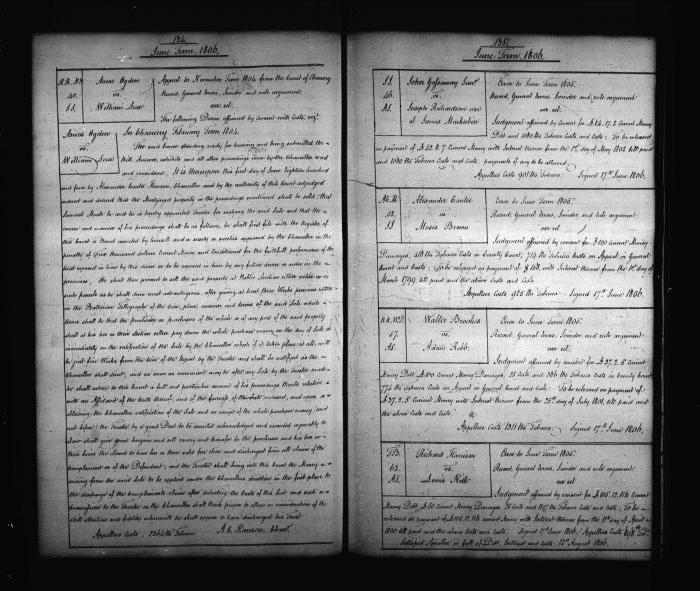 134.
June Term, 1806.
Amos Ogden
vs.
William Luce
40.
Appeal to November Term 1804 from the Court of Chancery
Record, General errors, Joinder and rule argument
over rul.
The following Decree affirmed by consent with Costs, viz.
Amos Ogden
vs
William Luce
In Chancery February Term 1804.
The said cause standing ready for hearing and being submitted, the
Bill, Answer, exhibits and all other proceedings were by the Chancellor read
and considered. It is thereupon this first day of June eighteen hundred
and four by Alexander Contee Hanson Chancellor and by the authority of this Court adjudged
ordered and decreed that the Mortgaged property in the proceedings mentioned shall be sold; that
Samuel be and he is hereby appointed Trustee for making the said Sale and that the
course and manner of his proceedings shall be as follows, he shall first file with the Register of
this Court a Bond executed by himself and a surety or sureties approved by the Chancellor in the
penalty of five thousand dollars Current Money and Conditioned for the faithful performance of the
trust reposed in him by this decree or to be reposed in him by any future decree or order in the
premises, He shall then proceed to sell the said property at Public Auction either entire or in
such parcels as he shall deem most advantageous after giving at least three Weeks previous notice
in the Baltimore Telegraph of the time, place, manner and terms of the said Sale which
terms shall be that the purchaser or purchasers of the whole or of any part of the said property
shall at his her or their election either pay down the whole purchase money on the day of Sale or
immediately on the ratification of the Sale by the Chancellor which if it takes place at all, will
be just five Weeks from the time of the Report by the Trustee and shall be notified in the
Chancellor shall direct, and as soon as convenient may be after any Sale by the Trustee made
he shall return to this Court a full and particular account of his proceedings therein relative
with an Affidavit of the truth thereof, and of the fairness of the Sale annexed, and soon
obtaining the Chancellors ratification of the Sale and on receipt of the whole purchase money (and
not before) the Trustee by a good Deed to be executed acknowledged and recorded agreeably to
Law shall give grant bargain and sell convey and transfer to the purchaser and his her or
their heirs the Land to him her or them sold free clear and discharged from all claim of the
Complainant or of the Defendant, and the Trustee shall bring into this Court the Money
arising from the said Sale to be applied under the Chancellors direction in the first place to
the discharge of the Complainants claim after deducting the Costs of this Suit and such a
commission to the Trustee as the Chancellor shall think proper to allow in consideration of the
skill attention and fidelity wherewith he shall appear to have discharged his Trust
A. C. Hanson, Chanr.
Appellees Costs 2364 lbs Tobacco
135.
June Term, 1806.
46.
vs.
Joseph Richardson use
of James Mackubin
Error to June Term 1805.
Record, General errors, Joinder and rule argument
over rul
Judgment affirmed by consent for
Debt and 1080 lbs Tobacco Costs and Costs. To be released
on payment of with Interest thereon from the 1st day of May 1802 till paid
and 1080 lbs Tobacco Costs and Costs. payments if any to be allowed.
Appellees Costs 901 lbs Tobacco. Signed 17th June 1806.
52.
Alexander Contee
vs.
Moses Brown
Error to June Term 1805.
Record, General errors, Joinder and rule argument
over rul
Judgment affirmed by consent for £ 100 Current Money
Damages, 418 lbs Tobacco Costs in County Court, 714 lbs Tobacco Costs on Appeal in General
Court and Costs. To be released on payment of with Interest thereon from the day of
March 1799 till paid and the above Costs and Costs
Appellees Costs 925 lbs Tobacco. Signed 17th June 1806.
57.
Walter Brookes
vs.
Adam Robb
Error to June Term 1805.
Record, General errors, Joinder and rule argument
over rul.
Judgment affirmed by consent for £ 37. 2. 5 Current
Money Debt, £ 100 Current Money Damages, and 386 lbs Tobacco Costs in County Court
775 lbs Tobacco Costs on Appeal in General Court and Costs. To be released on payment of
£ 37. 2. 5 Current Money with Interest thereon from the 25th day of July 1801 till paid and
the above Costs and Costs.
Appellees Costs 1311 lbs Tobacco. Signed 17th June 1806.
63.
Richard Harrison
vs.
Lewis Neth
Error to June Term 1805.
Record, General errors, Joinder and rule argument
over rul
Judgment affirmed by consent for £ 106. 12. 11½ Current
Money Debt, £ 50 Current Money Damages, Tobacco Costs and Costs. To be
released on payment of £ 106. 12. 11½ Current Money with Interest thereon from the 11th day of April
1800 till paid and the above Costs and Costs. Signed 17th June 1806. Appellees Costs
Satisfied Appellee in full of Debt, Interest and Costs 12th August 1806.